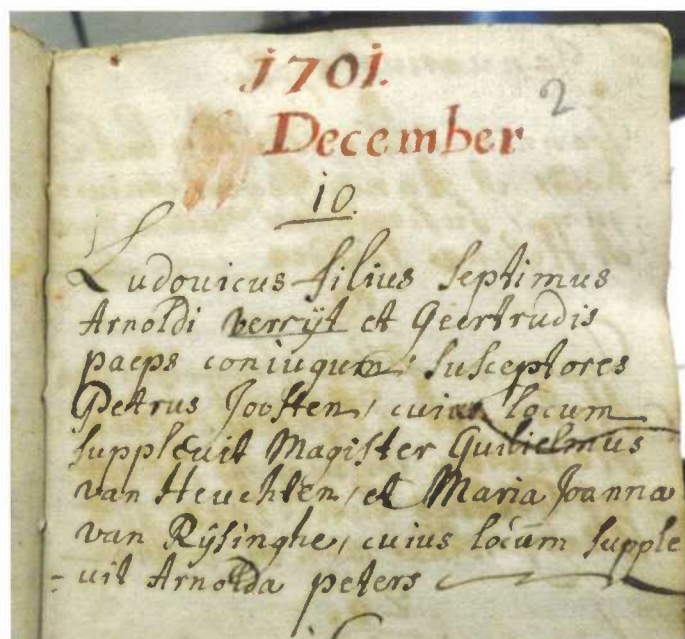 1701.
2
December
10.
Ludovicus filius septimus
Arnoldi verrijt et Geertrudis
paeps coniugum, susceptores
Petrus Joosten, cuius locum
supplevit Magister Guilielmus
van Heuchten, et Maria Joanna
van Rijsinghe, cuius locum supple
=vit Arnolda peters